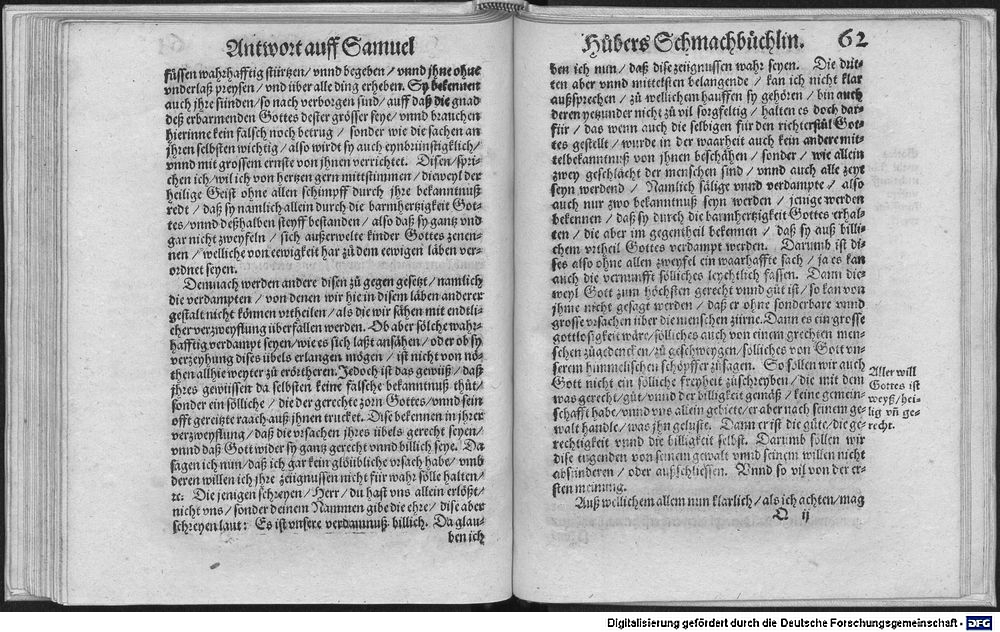 Antwort auff Samuel
füssen wahrhafftig stürtzen/ vnnd begeben/ vnnd jhne ohne
vnderlaß preysen/ vnd über alle ding erheben. Sy bekennen
auch jhre sünden/ so nach verborgen sind/ auff daß die gnad
deß erbarmenden Gottes dester grösser seye/ vnnd brauchen
hierinne kein falsch noch betrug/ sonder wie die sachen an
jhren selbsten wichtig/ also wirdt sy auch eynbrünstigklich/
vnnd mit grossem ernste von jhnen verrichtet. Disen/ spri-
chen ich/ wil ich von hertzen gern mittstimmen/ dieweyl der
heilige Geist ohne allen schimpff durch jhre bekanntnuß
redt/ daß sy nämlich allein durch die barmhertzigkeit Got-
tes/ vnnd deßhalben steyff bestanden/ also daß sy gantz vnd
gar nicht zweyfeln/ sich außerwelte kinder Gottes zenen-
nen/ welliche von eewigkeit har zu dem eewigen läben ver-
ordnet seyen.
Demnach werden andere disen zu gegen gesetzt/ namlich
die verdampten/ von denen wir hie in disem läben anderer
gestalt nicht können vrtheilen/ als die wir sähen mit endtli-
cher verzweyflung überfallen werden. Ob aber sölche wahr-
hafftig verdampt seyen/ wie es sich laßt ansähen/ oder ob sy
verzeyhung dises übels erlangen mögen/ ist nicht von nö-
then allhie weyter zu erörtheren. Jedoch ist das gewüß/ daß
jhres gewüssen da selbsten keine falsche bekanntnuß thüt/
sonder ein sölliche/ die der gerechte zorn Gottes/ vnnd sein
offt gereitzte raach auß jhnen trucket. Dise bekennen in jhrer
verzweyflung/ daß die vrsachen jhres übels gerecht seyen/
vnnd daß Gott wider sy gantz gerecht vnnd billich seye. Da
sagen ich nun/ daß ich gar kein glöübliche vrsach habe/ vmb
deren willen ich jhre zeügnussen nicht für wahr sölle halten/
ꝛc. Die jenigen schreyen/ Herr/ du hast vns allein erlößt/
nicht vns/ sonder deinem Nammen gibe die ehre/ dise aber
schreyen laut: Es ist vnsere verdamnuß billich. Da glau-
ben ich
Hübers Schmachbüchlin. 62
ben ich nun/ daß dise zeügnussen wahr seyen. Die drit-
ten aber vnnd mittelsten belangende/ kan ich nicht klar
außsprechen/ zu wellichem hauffen sy gehören/ bin auch
deren yetzunder nicht zu vil sorgfeltig/ halten es doch dar-
für/ das wenn auch die selbigen für den richterstül Got-
tes gestellt/ wurde in der waarheit auch kein andere mit-
telbekanntnuß von jhnen beschähen/ sonder/ wie allein
zwey geschlächt der menschen sind/ vnnd auch alle zeyt
seyn werdend/ Namlich sälige vnnd verdampte/ also
auch nur zwo bekanntnuß seyn werden/ jenige werden
bekennen/ daß sy durch die barmhertzigkeit Gottes erhal-
ten/ die aber im gegentheil bekennen/ daß sy auß billi-
chem vrtheil Gottes verdampt werden. Darumb ist di-
ses also ohne allen zweyfel ein waarhaffte sach/ ja es kan
auch die vernunfft sölliches leychtlich fassen. Dann die-
weyl Gott zum höchsten gerecht vnnd güt ist/ so kan von
jhme nicht gesagt werden/ daß er ohne sonderbare vnnd
grosse vrsachen über die menschen zürne. Dann es ein grosse
gottlosigkeit wäre/ sölliches auch von einem grechten men-
schen zügedencken/ zu geschweygen/ sölliches von Gott vn-
serem himmelischen schöpffer zusagen. So söllen wir auch
Gott nicht ein sölliche freyheit züschreyben/ die mit dem
was gerecht/ güt/ vnnd der billigkeit gemäß/ keine gemein-
schafft habe/ vnnd vns allein gebiete/ er aber nach seinem ge-
walt handle/ was jhn geluste. Dann er ist die güte/ die ge-
rechtigkeit vnnd die billigkeit selbst. Darumb söllen wir
dise tugenden von seinem gewalt vnnd seinem willen nicht
absünderen/ oder außschliessen. Vnnd so vil von der er-
sten meinung.
Auß wellichem allem nun klarlich/ als ich achten/ mag
Q ij
Aller will
Gottes ist
weyß/ hei-
lig vñ ge-
recht.
Digitalisierung gefördert durch die Deutsche Forschungsgemeinschaft - DFG